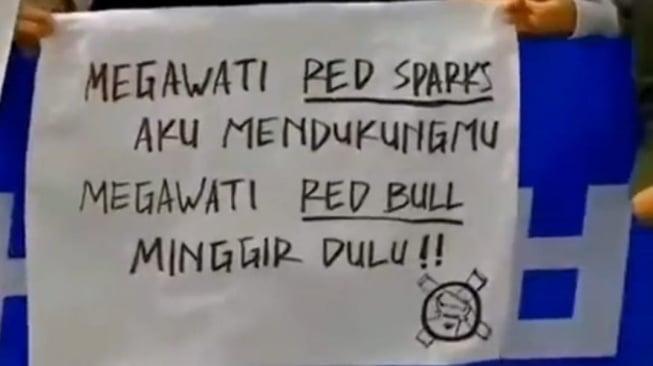 MEGAWATI RED SPARKS
AKU MENDUKUNGMU
MEGAWATI RED BULL
MINGGIR DULU!!